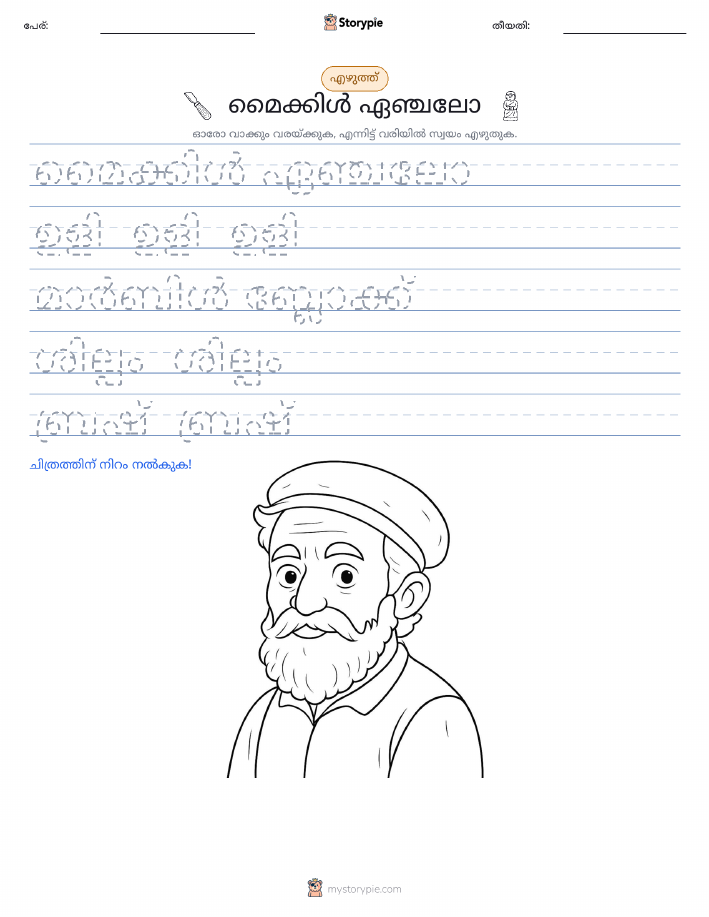 പേര്:
Storypie
തീയതി:
എഴുത്ത്
മൈക്കിൾ ഏഞ്ചലോ
ഓരോ വാക്കും വരയ്ക്കുക, എന്നിട്ട് വരിയിൽ സ്വയം എഴുതുക.
മൈക്കിൾ ഏഞ്ചലോ
ഉളി ഉളി ഉളി
മാർബിൾ ബ്ലോക്ക്
ശില്പം ശില്പം
ബ്രഷ് ബ്രഷ്
ചിത്രത്തിന് നിറം നൽകുക!
mystorypie.com